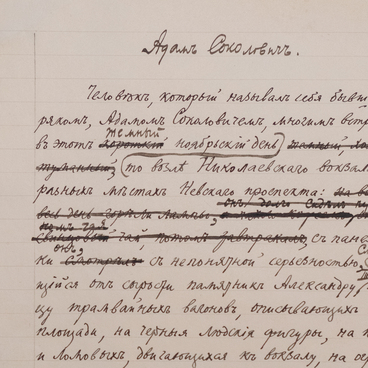 Адамъ Соколовичъ.
Человѣкъ, который называлъ себя бывш
рякомъ, Адамомъ Соколовичемъ, многимъ встр
темный
въ этотъ короткій ноябрьскій день
туманный то возлѣ Николаевскаго вокзала
ральныхъ мѣстахъ Невскаго проспекта:
весь день горѣли лампы,
чай, потомъ завтракалъ съ пане
ки смотрѣлъ съ непонятной серьезностью
щійся отъ сырости памятникъ Александру
цу трамвайныхъ вагоновъ, описывающихъ
площади, на черныя людскія фигуры, на
и ломовыхъ, двигающихся къ вокзалу, на